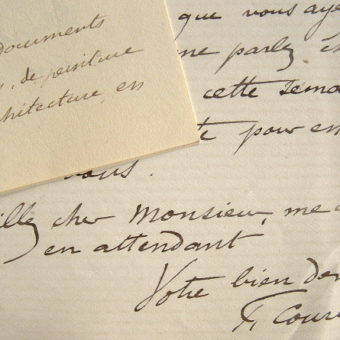 documents
de peinture
architecture, en
que vous aye
me parlez
cette sema
pour en
vous.
cher Monsieur, me
en attendant
Votre bien de
F. Cour